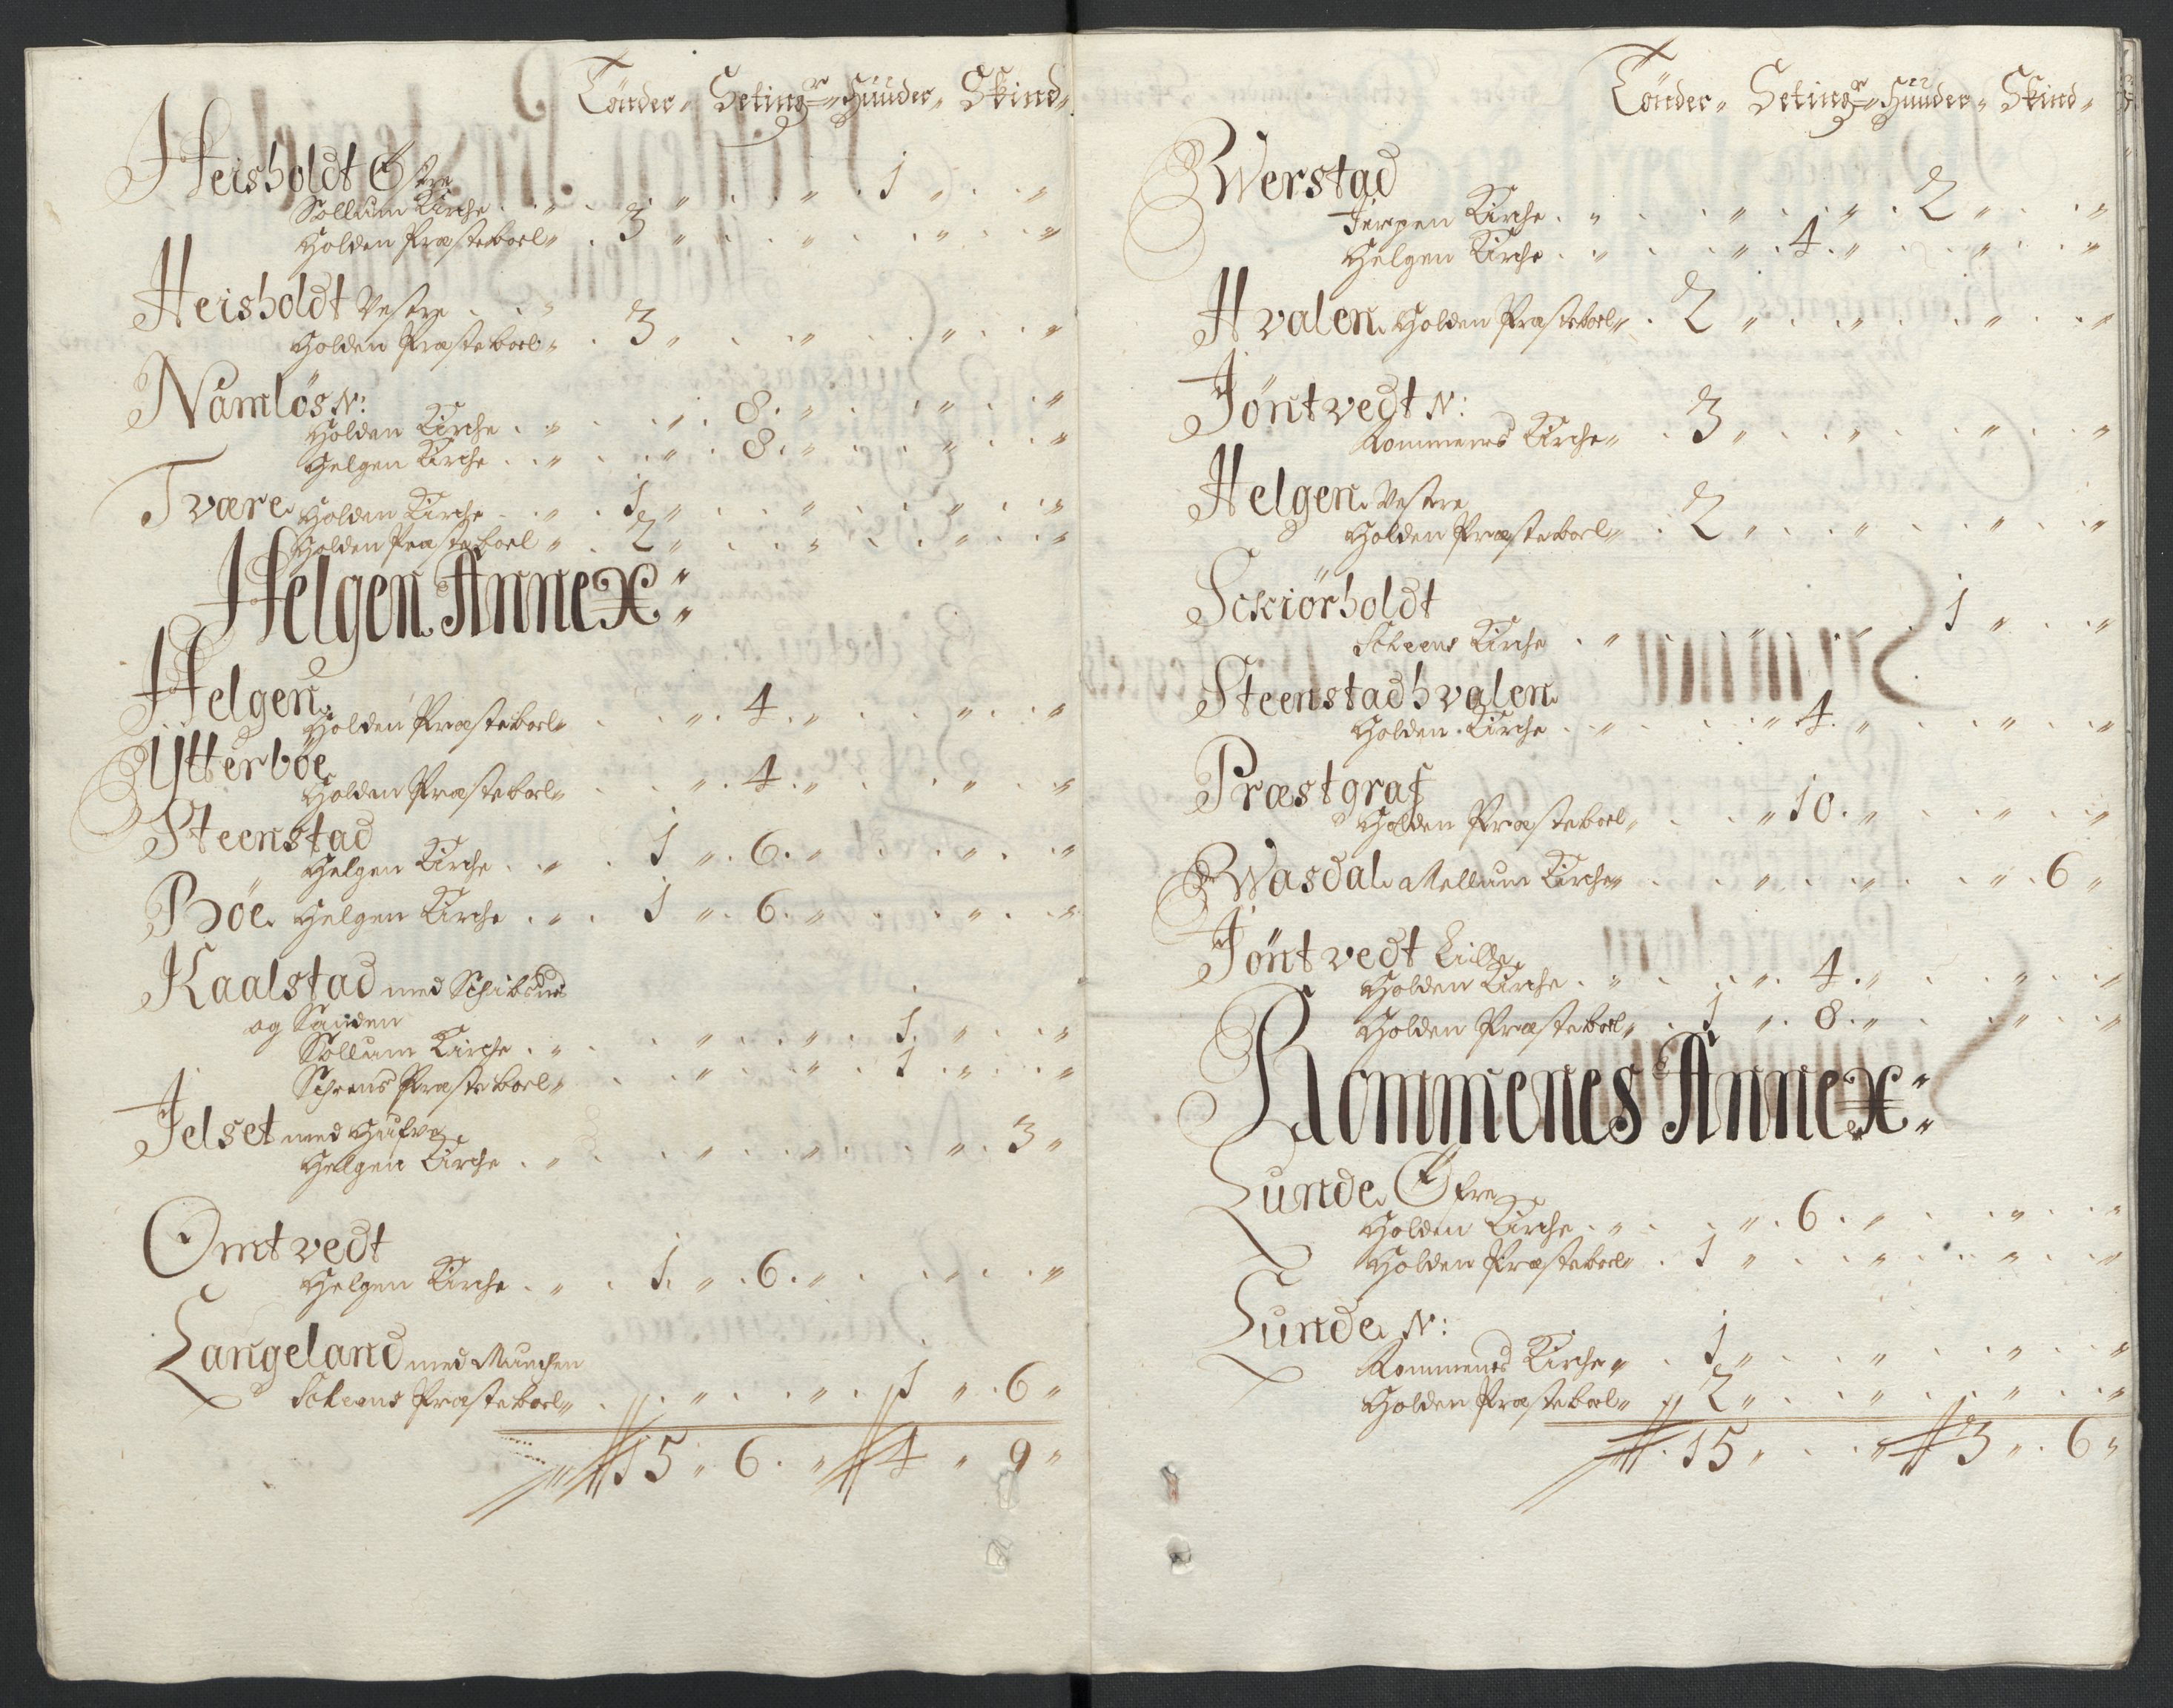 Tönder „ Seting:r „ Huuder „ Skind „
Heisholdt Östre
Sollum Kirche . „ . „ . . „ . 1 „ . . „
Holden Præsteboel „ . 3 „ . . „ . . „ . . „
Heisholdt Vestre . . „
Holden Præsteboel „ . 3 „ . . „ . . „ . . „
Namløs N:
Holden Kirche . „ . . „ . 8 . „ . . „ . . „
Helgen Kirche . . „ . . „ . 8 . „ . . „ . . „
Tvære Holden Kirche . „ . 1 „ . . „ . . „ . . „
Holden Præsteboel „ . 2 „ . . „ . . „ . . „
Helgen Annex :
Helgen
Holden Præsteboel „ . . „ . 4 . „ . . „ . . „
Ytterböe
Holden Præsteboel „ . . „ . 4 . „ . . „ . . „
Steenstad
Helgen Kirche . . „ . 1 „ . 6 . „ . . „ . . „
Böe Helgen Kirche . „ . 1 „ . 6 . „ . . „ . . „
Kaalstad med
og Sanden
Sollum Kirche . „ . . „ . . „ . 1 „ . . „
Scheens Præsteboel „ . . „ . . „ . 1 . „ . . „
Jelset med
Helgen Kirche . „ . . „ . . „ . . „ . 3 „
Omtvedt
Helgen Kirche . „ . 1 . „ . 6 . „ . . „ . . „
Langeland med Munchen
Scheens Præsteboel „ . . „ . . „ . 1 „ . 6 „
15 „ 6 . „ 4 „ 9 „
Tönder „ Seting:r „ Huuder „ Skind „
Werstad
Jerpen Kirche . „ . . „ . . „ . 2 „ . . „
Helgen Kirche . „ . . „ . 4 . „ . . „ . . „
Hvalen Holden Præsteboel „ . 2 „ . . „ . . „ . . „
Jöntvedt N:
Rommenes Kirche „ . 3 „ . . „ . . „ . . „
Helgen Vestre
Holden Præsteboel „ . 2 „ . . „ . . „ . . „
Sckiörholdt
Scheens Kirche . „ . . „ . . „ . 1 „ . . „
Steenstadhvalen
Holden Kirche . „ . . „ 4 . „ . . „ . . „
Præstgraf
Holden Præsteboel „ . . „ 10 . „ . . „ . . „
Wasdal Mellum Kirche „ . . „ . . „ . . „ . 6 „
Jöntvedt Lille
Holden Kirche . „ . . „ . 4 . „ . . „ . . „
Holden Præsteboel „ . 1 „ . 8 . „ . . „ . . „
Rommenes Annex :
Lunde Öfre
Holden Kirche . „ . . „ . 6 . „ . . „ . . „
Holden Præsteboel „ . 1 „ . . „ . . „ . . „
Lunde N:
Rommenes Kirche „ . 1 „ . . „ . . „ . . „
Holden Præsteboel „ . 2 „ . . „ . . „ . . „
15 „ . . „ 3 „ . 6 „